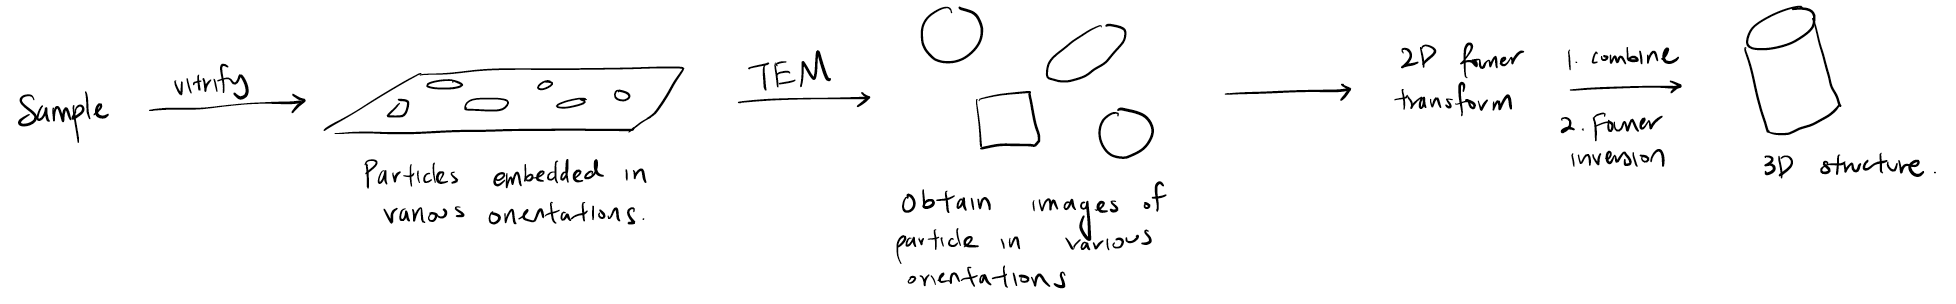 Sample
vitrify
Particles embedded in
various orientations.
TEM
Obtain images of
particle in various
orientations
2D fourier
transform
1. combine
2. Fourier
inversion
3D structure.